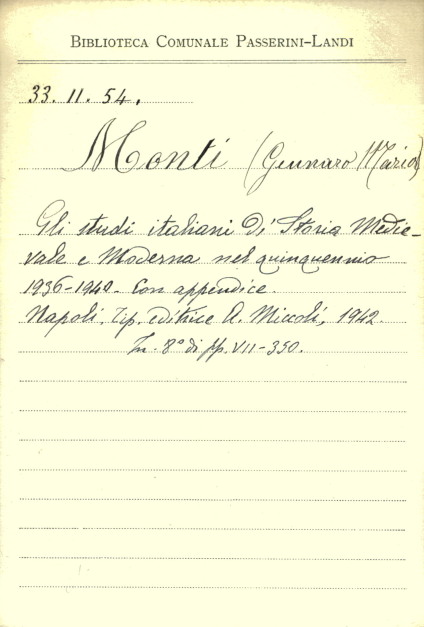 BIBLIOTECA COMUNALE PASSERINI-LANDI
33. 11. 54.
Monti (Gennaro Maria)
Gli studi italiani di Storia Medie-
vale e Moderna nel quinquennio
1936-1940. Con appendice.
Napoli. Tip. editrice A. Miccoli, 1942.
In. 8° di pp. VII-350.